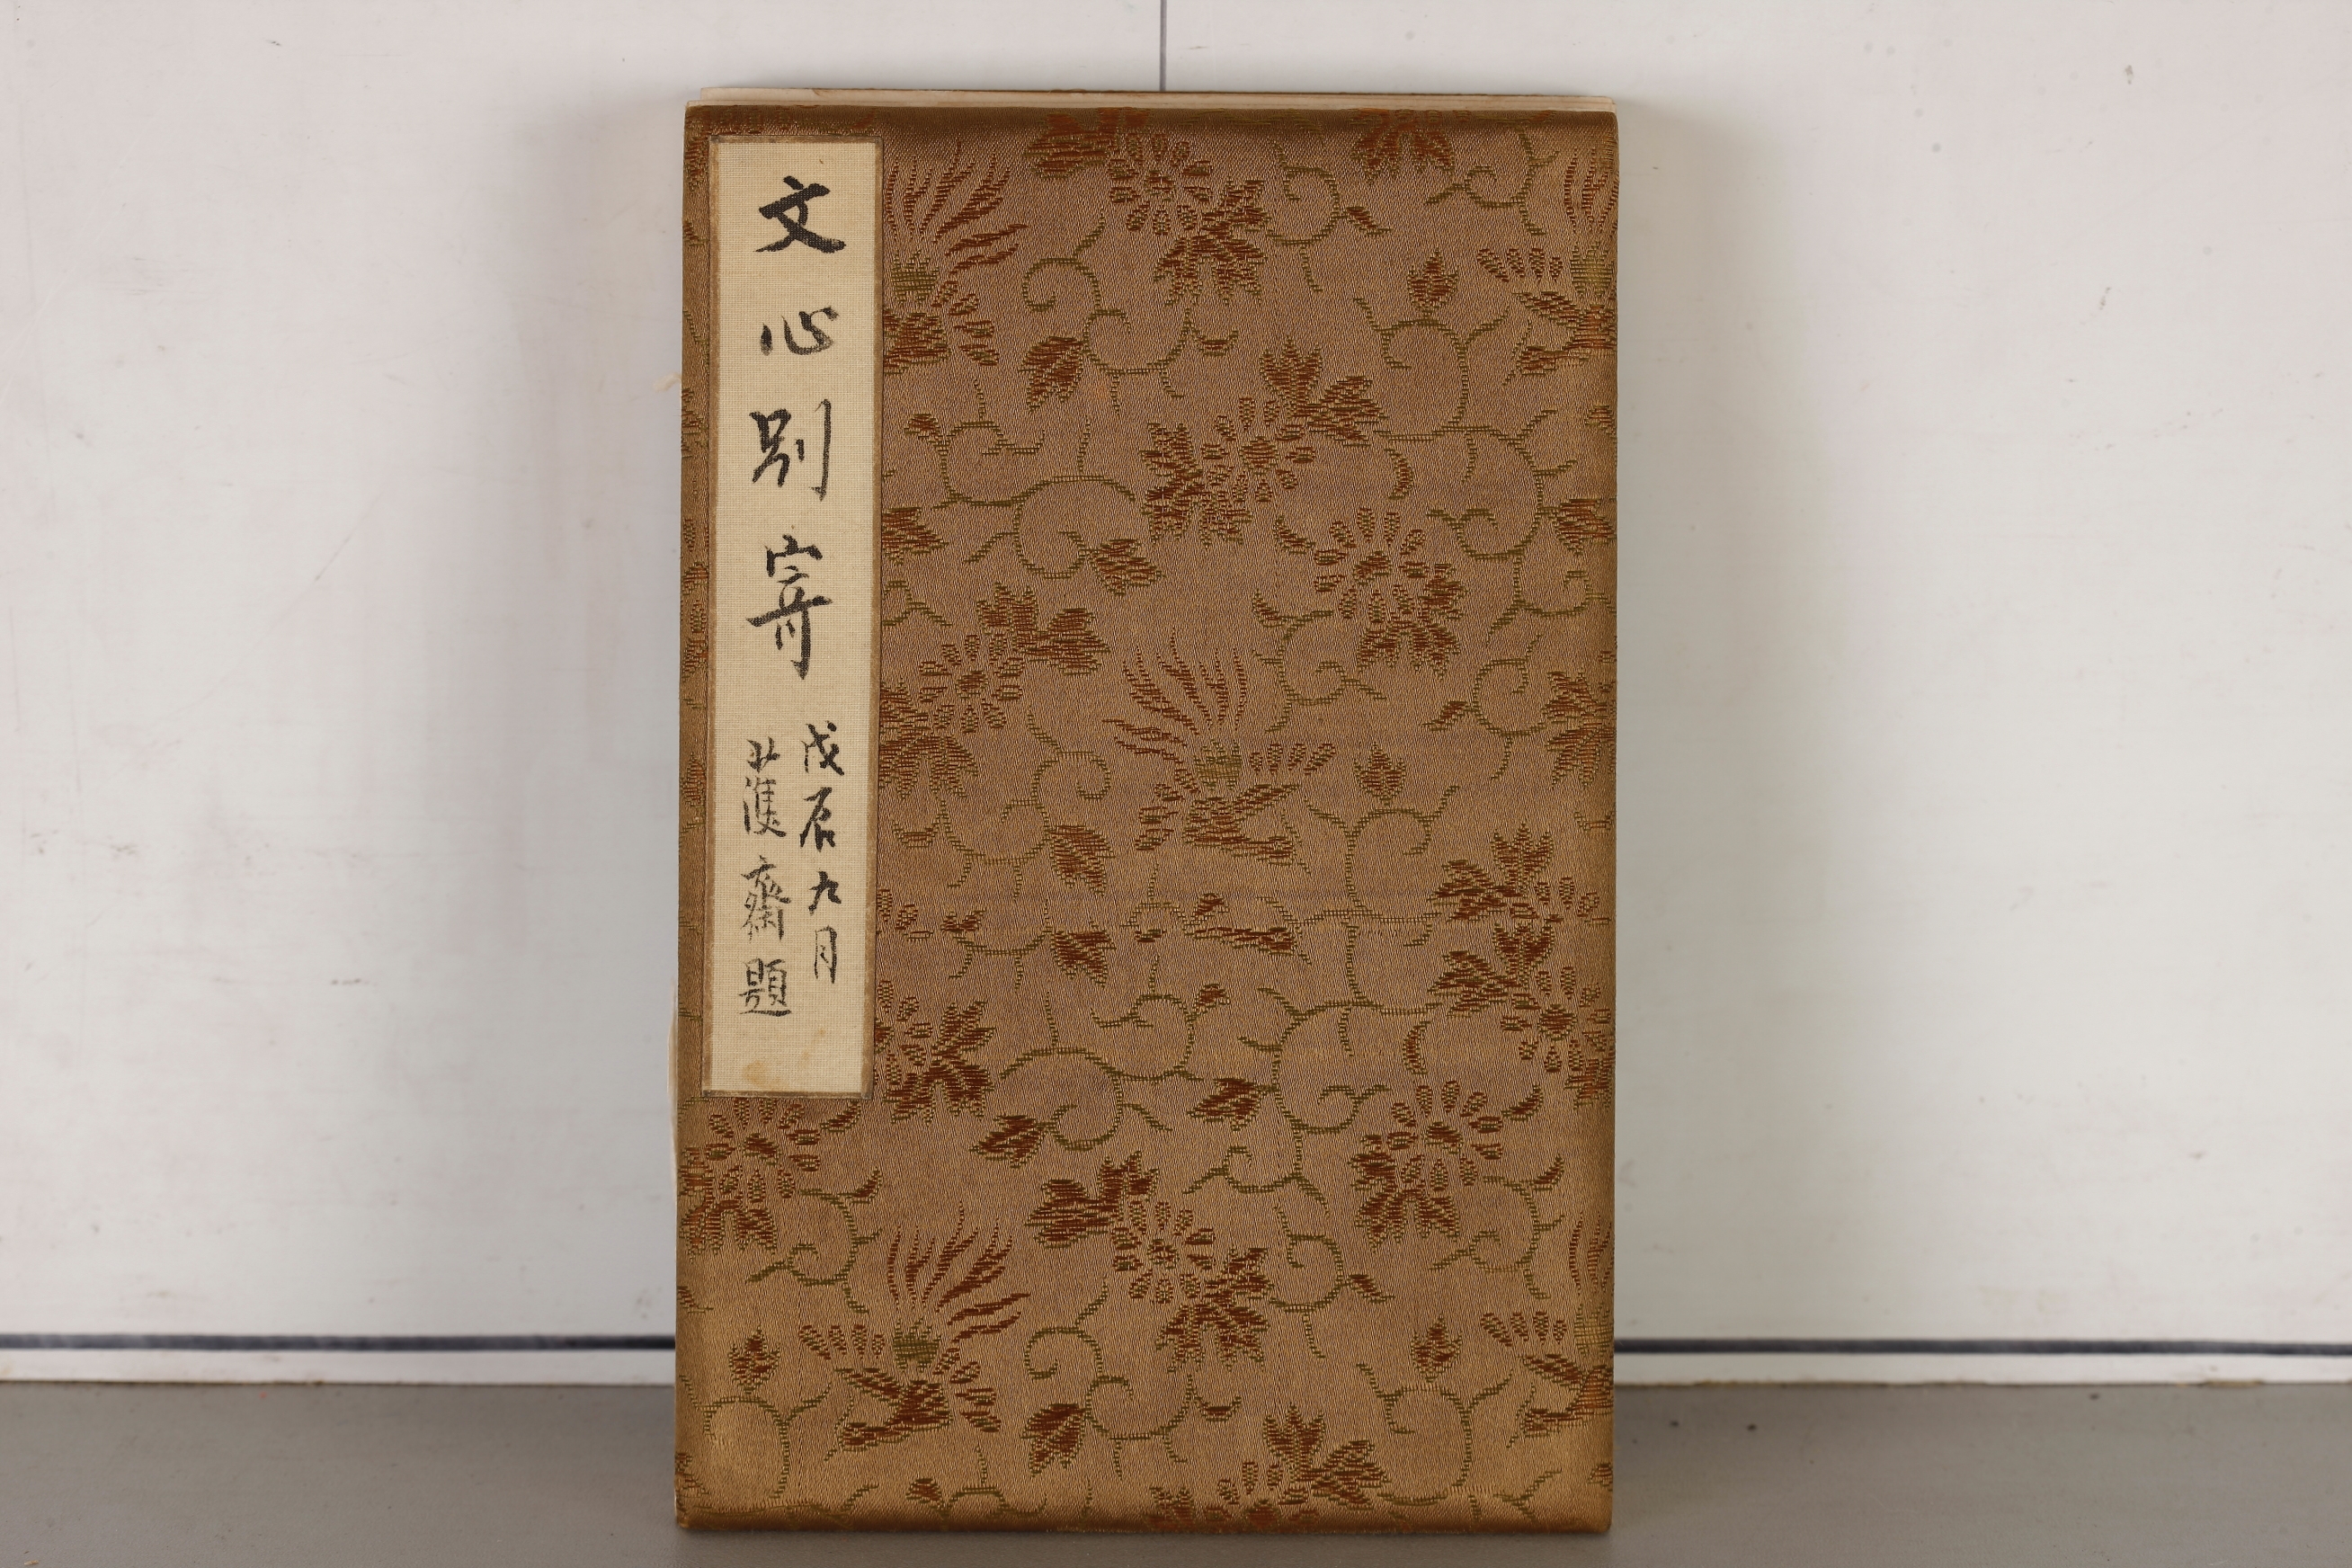 文心別寄
戊辰九月
齋題